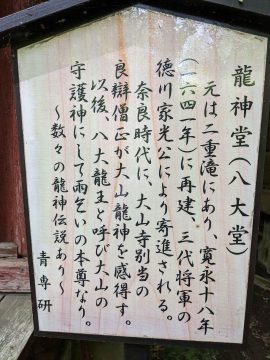 龍神堂(八大堂)
元は二重滝にあり、寛永十八年
(一六四一年)に再建、三代将軍の
徳川家光公により寄進される。
奈良時代に、大山寺別当の
良辯僧正が大山龍神を感得す。
以後、八大龍王と呼び大山の
守護神にして雨乞いの本尊なり。
～数々の龍神伝説あり～
青専研